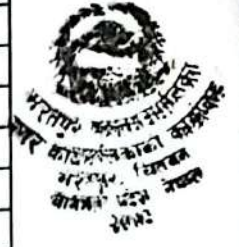 भरतपुर महानगरपालिका
नगर कार्यपालिकाको कार्यालय
भरतपुर, चितवन
बागमती प्रदेश नेपाल